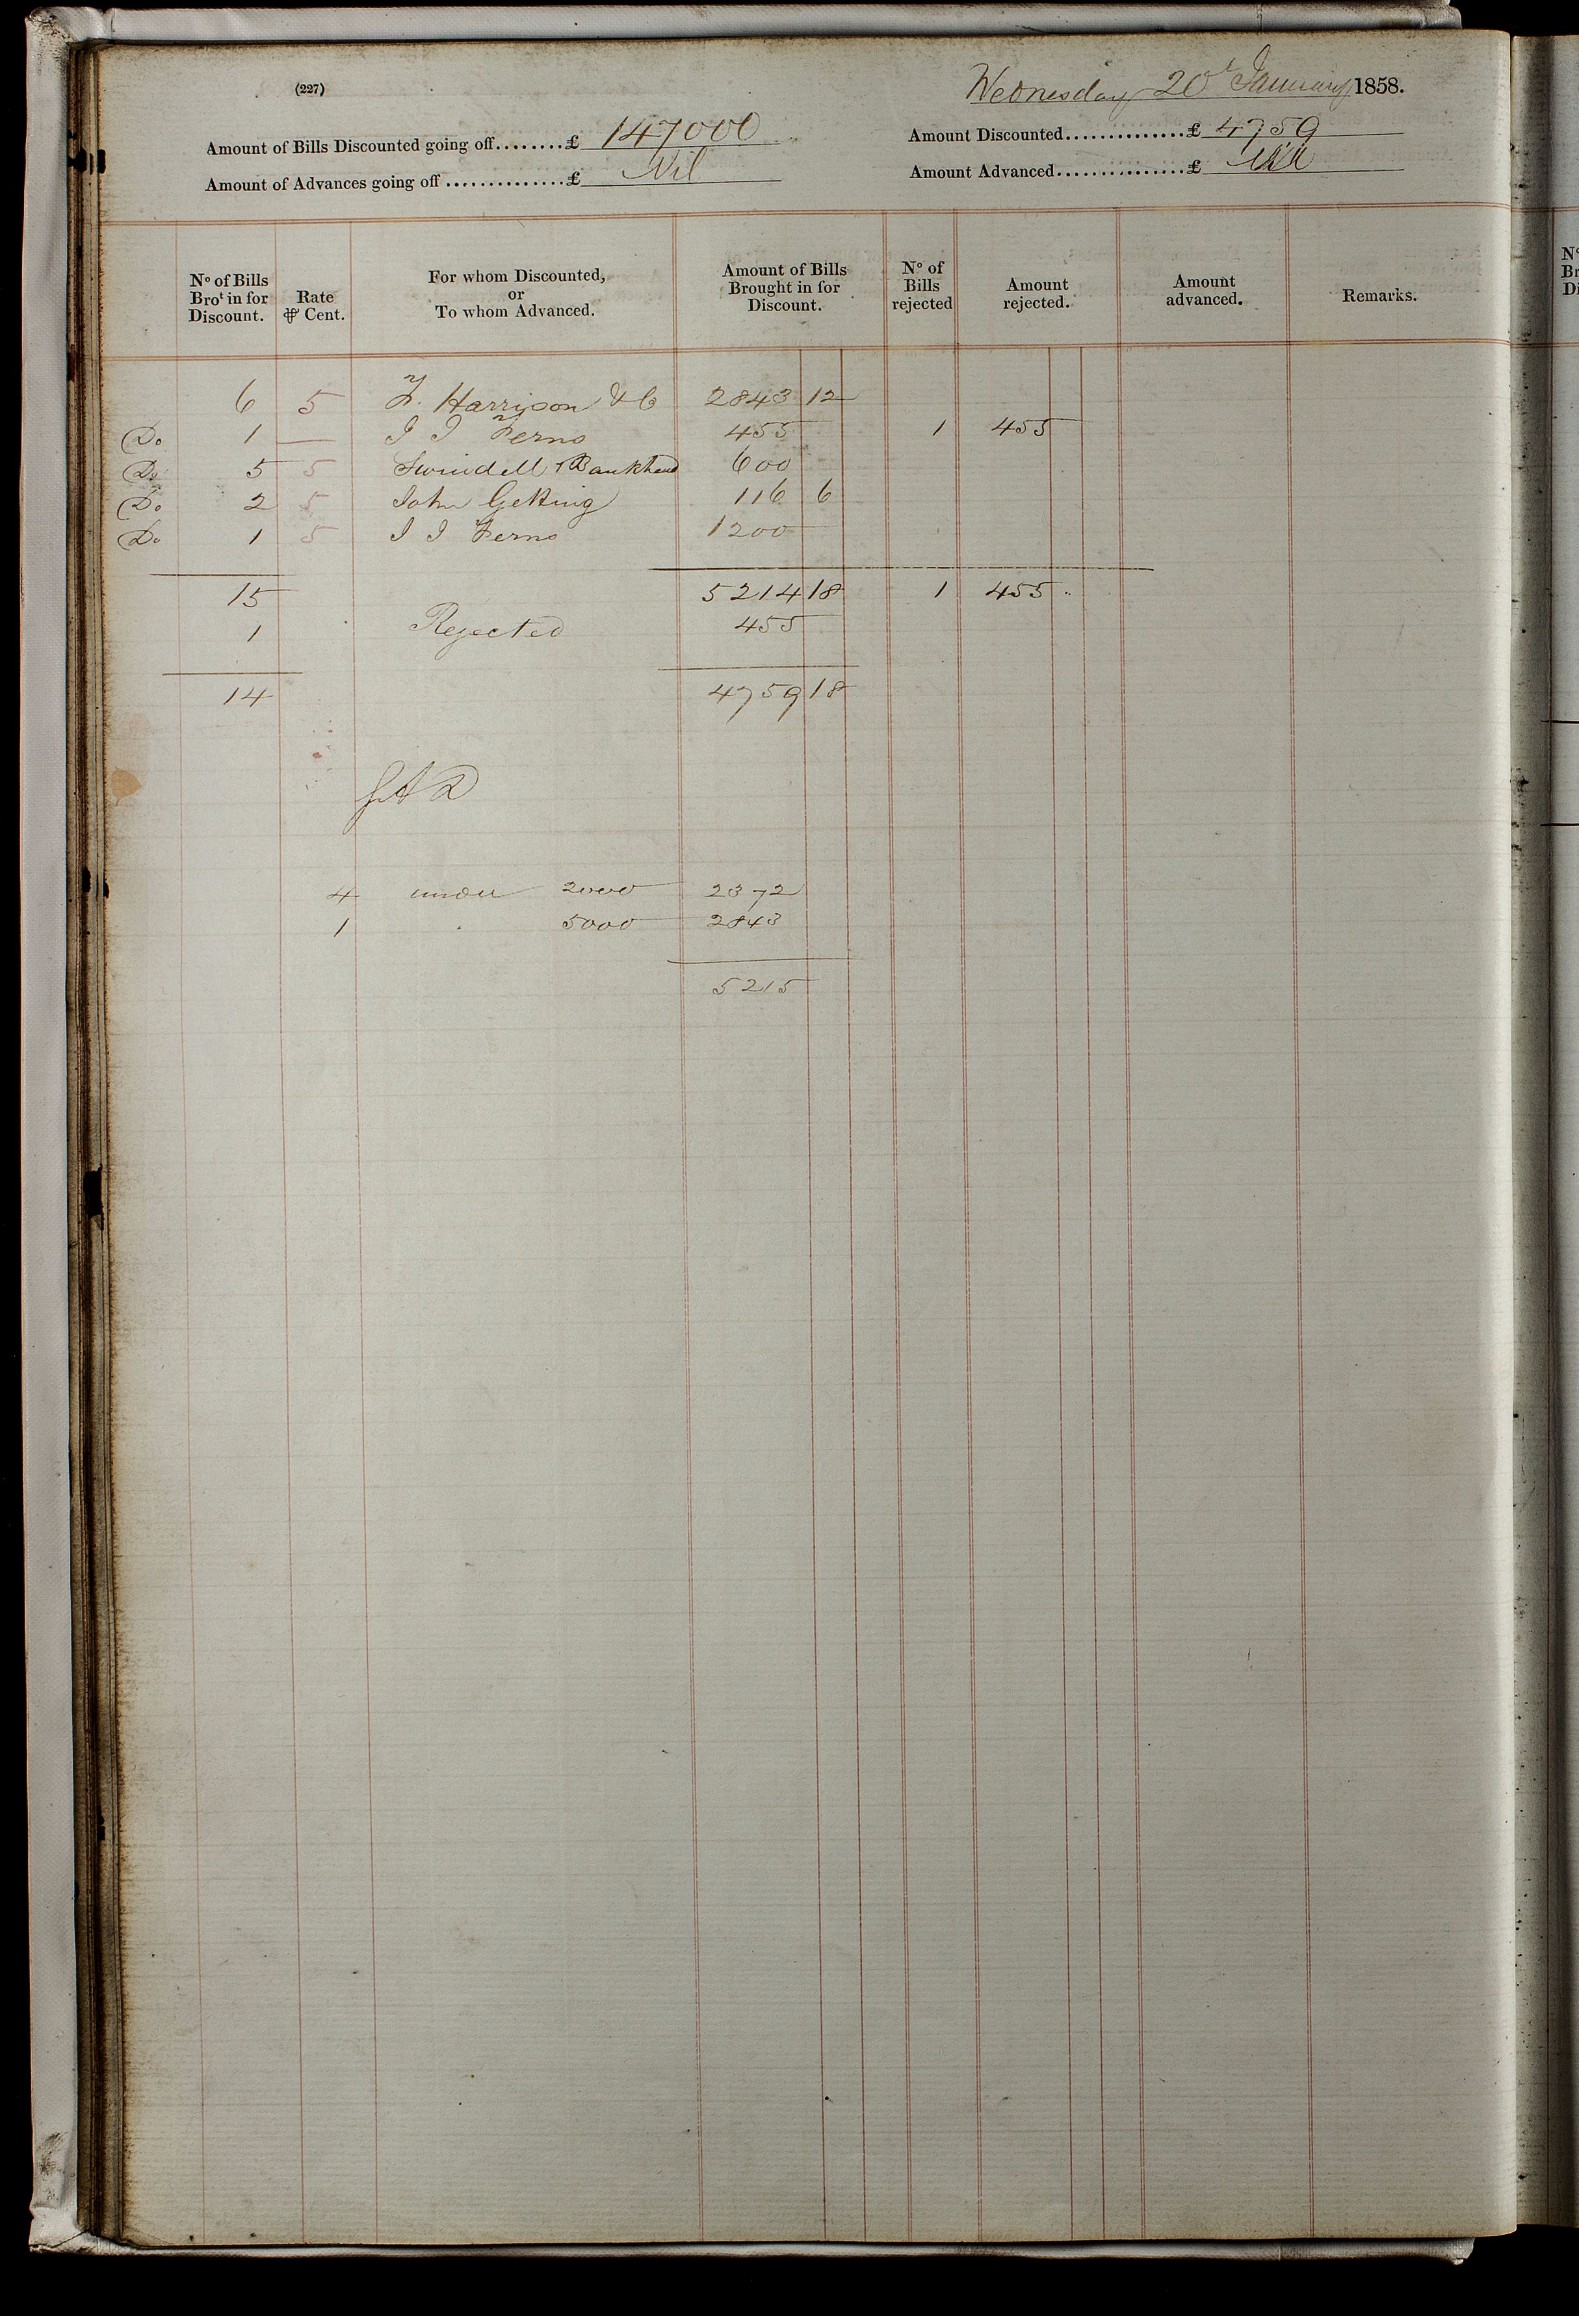 (227)
Wednesday 20th January 1858.
Amount of Bills Discounted going off........£ 147000
Amount Discounted...............£ 4759
Amount of Advances going off..............£ Nil
Amount Advanced................£ Nil
No of Bills Brot in for Discount.
Rate ⅌ Cent.
For whom Discounted, or To whom Advanced.
Amount of Bills Brought in for Discount.
No of Bills rejected
Amount rejected.
Amount advanced.
Remarks.
6 5 F. Harrison & Co 2843 12
Do 1 — I I Ferns 455 1 455
Do 5 5 Swindell Bankhead 600
Do 2 5 John Getting 116 6
Do 1 5 I I Ferns 1200
15 5214 18 1 455
1 Rejected 455
14 4759 18
4 under 2000 2372
1 . 5000 2843
5215